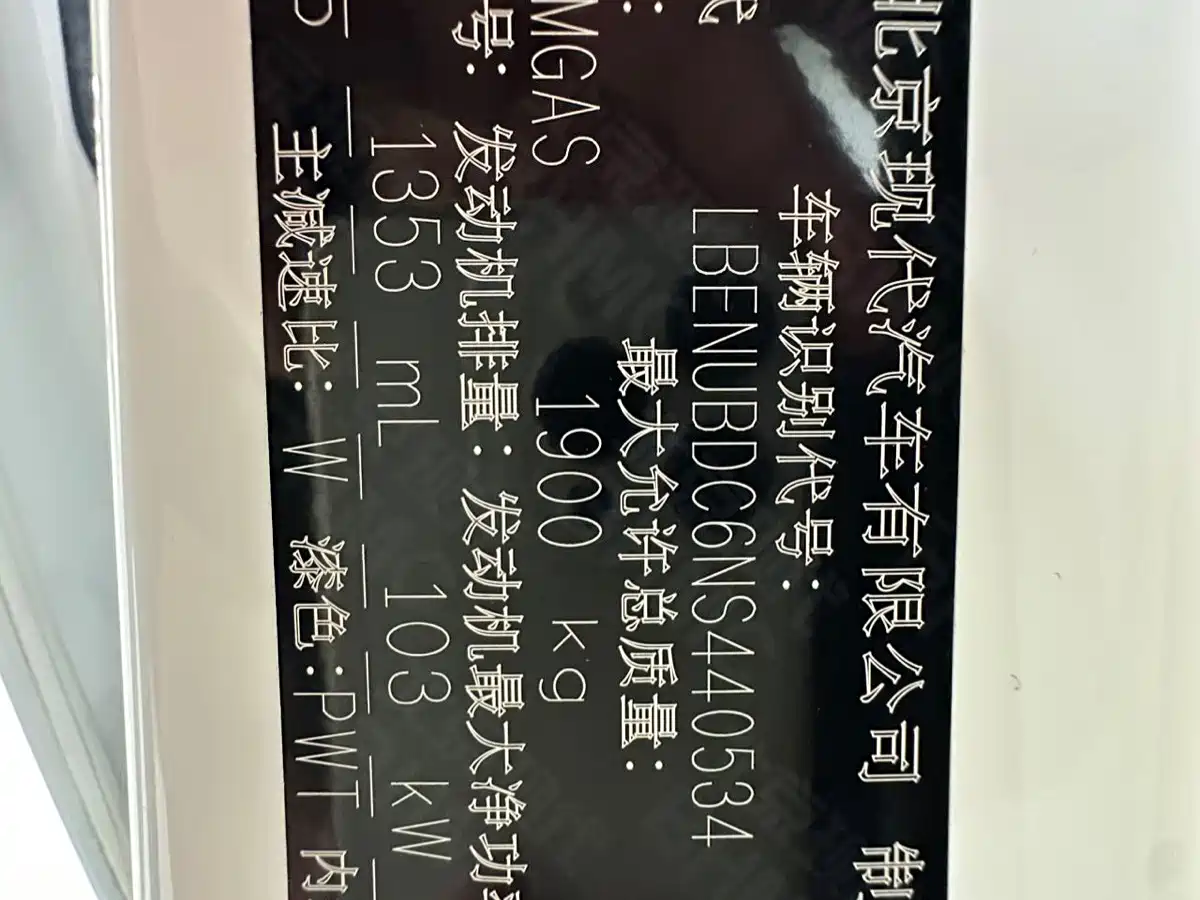 北京现代汽车有限公司 制
代
车辆识别代号:
LBENUBDC6NS440534
: 最大允许总质量:
MGAS 1900 kg
号: 发动机排量: 发动机最大净功
1353 mL 103 kW
主减速比: W 漆色:PWT 内